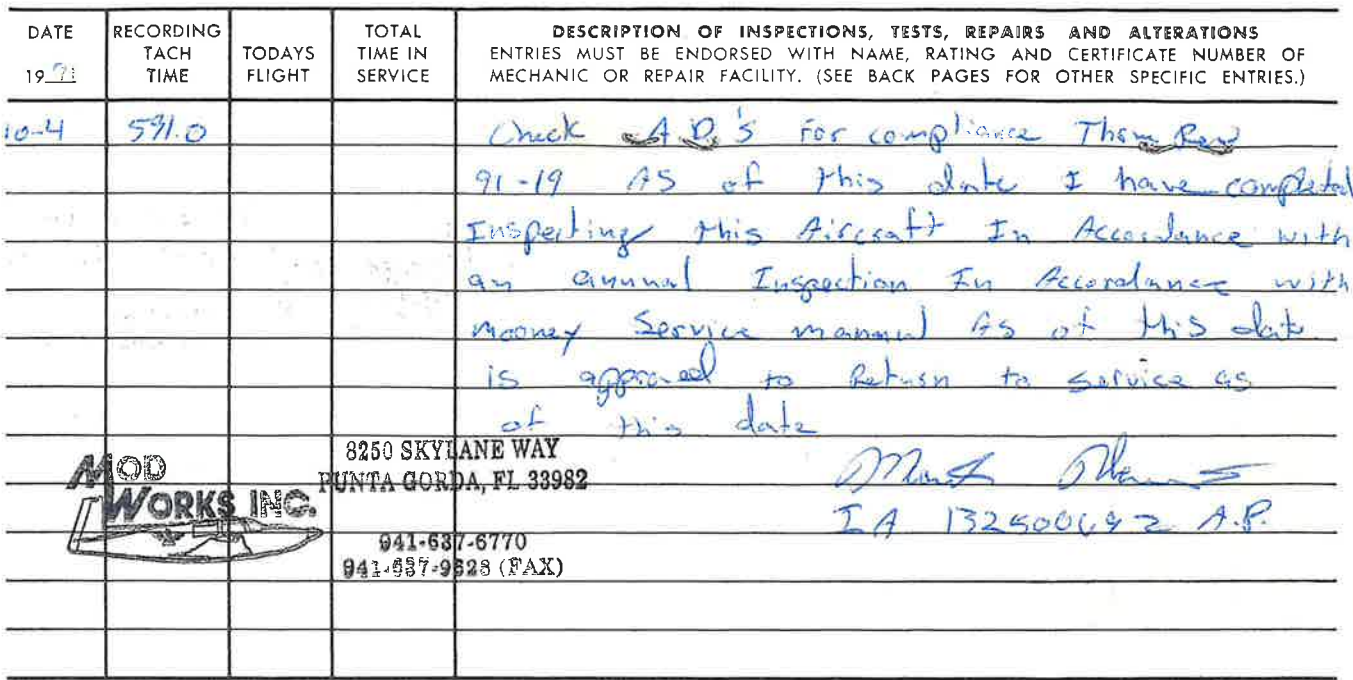 DATE
19 91
RECORDING TACH TIME
TODAYS FLIGHT
TOTAL TIME IN SERVICE
DESCRIPTION OF INSPECTIONS, TESTS, REPAIRS AND ALTERATIONS
ENTRIES MUST BE ENDORSED WITH NAME, RATING AND CERTIFICATE NUMBER OF
MECHANIC OR REPAIR FACILITY. (SEE BACK PAGES FOR OTHER SPECIFIC ENTRIES.)
10-4 591.0 Check A.D.'s For compliance
91-19 AS of this date I have completed
Inspecting this Aircraft In Accordance with
an annual Inspection In Accordance with
mooney Service manual As of this date
is approved to Return to service as
of this date
MOD WORKS INC.
8250 SKYLANE WAY
PUNTA GORDA, FL 33982
941-637-6770
941-637-9828 (FAX)
IA A.P.